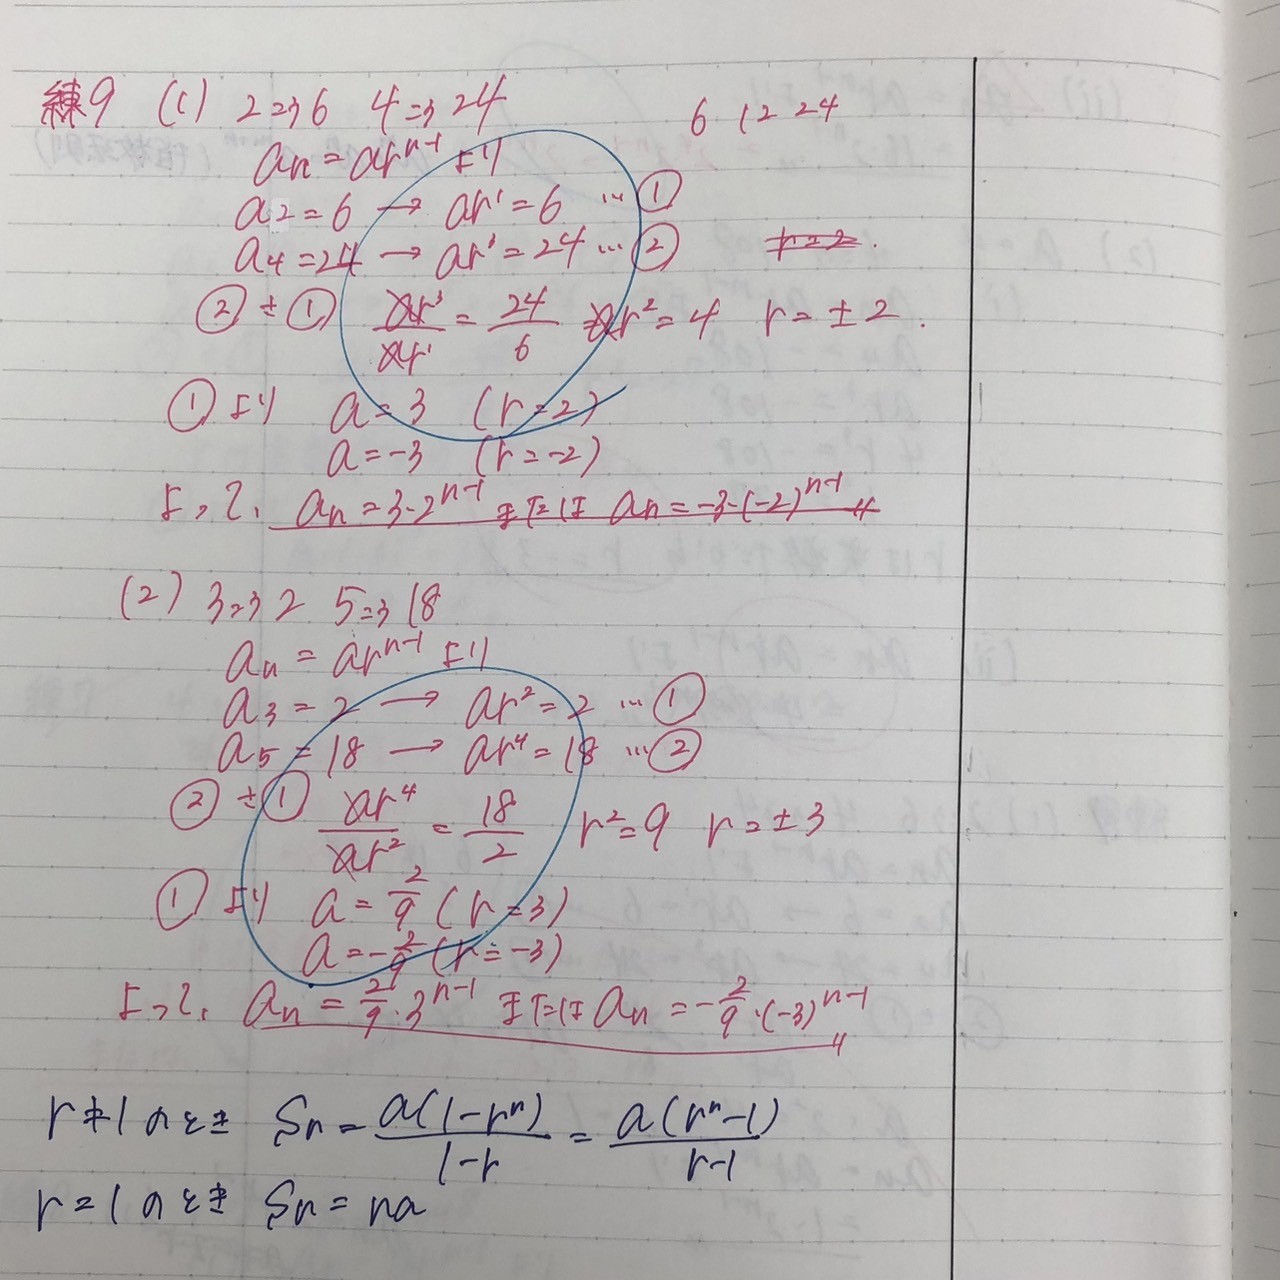 練9 (1) 2⇒6 4⇒24 6 12 24
an = ar^{n-1} より
a2 = 6 → ar^1 = 6 … ①
a4 = 24 → ar^3 = 24 … ② r=2.
② ÷ ① ar^3/ar^1 = 24/6 r^2 = 4 r = ±2.
①より a = 3 (r=2)
a = -3 (r=-2)
よって、 an = 3・2^{n-1} または an = -3・(-2)^{n-1}
(2) 3⇒2 5⇒18
an = ar^{n-1} より
a3 = 2 → ar^2 = 2 … ①
a5 = 18 → ar^4 = 18 … ②
② ÷ ① ar^4/ar^2 = 18/2 r^2 = 9 r = ±3
①より a = 2/9 (r=3)
a = -2/9 (r=-3)
よって、 an = 2/9・3^{n-1} または an = -2/9・(-3)^{n-1}
r≠1のとき Sn = a(1-r^n)/1-r = a(r^n-1)/r-1
r=1のとき Sn = na